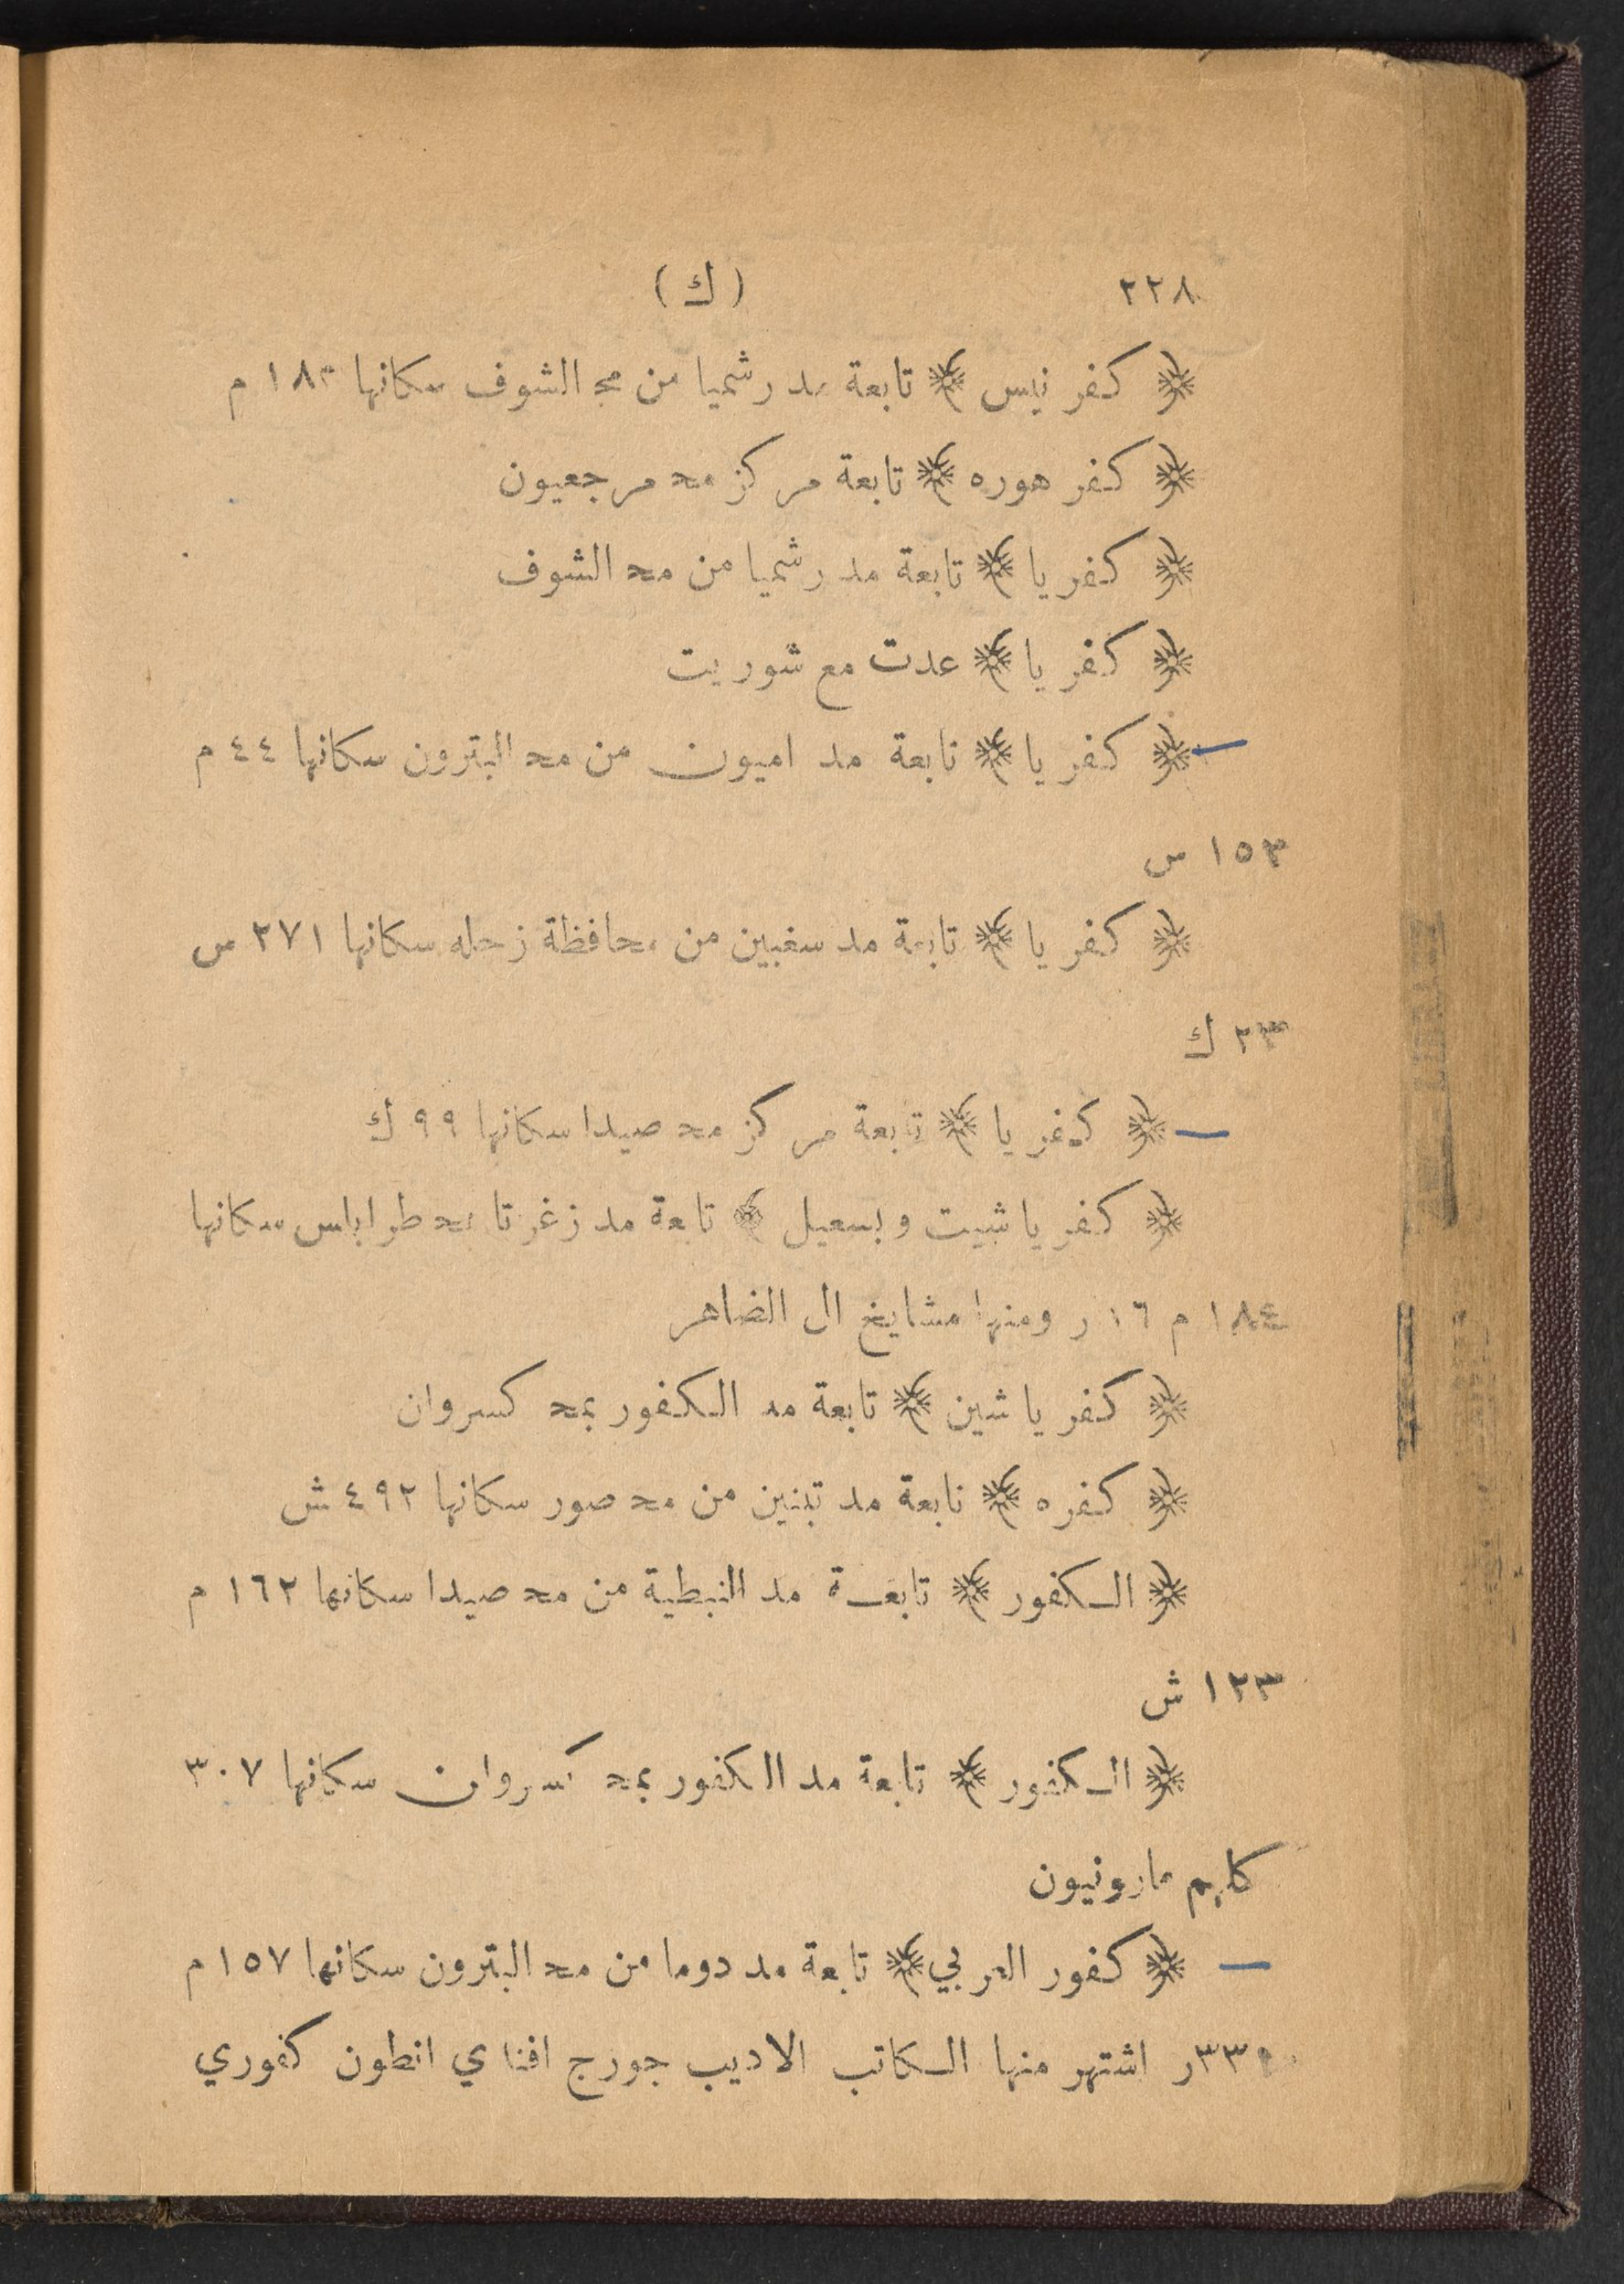 ٢٢٨ (ك)
﴿ كفر نيس ﴾ تابعة مد رشميا من مح الشوف سكانها ١٨٣ م
﴿ كفر هوره ﴾ تابعة مركز مح مرجعيون
﴿ كفريا ﴾ تابعة مد رشميا من مح الشوف
﴿ كفريا ﴾ عدت مع شوريت
﴿ كفريا ﴾ تابعة مد اميون من مح البترون سكانها ٤٤ م
١٥٣ س
﴿ كفريا ﴾ تابعة مد سغبين من محافظة زحله سكانها ٢٧١ س
٢٣ ك
﴿ كفريا ﴾ تابعة مركز مح صيدا سكانها ٩٩ ك
﴿ كفر ياشيت وبسعيل ﴾ تابعة مد زغرتا مح طرابلس سكانها
١٨٤ م ١٦ ر ومنها مشايخ ال الضاهر
﴿ كفر ياشين ﴾ تابعة مد الكفور بمح كسروان
﴿ كفره ﴾ تابعة مد تبنين من مح صور سكانها ٤٩٢ ش
﴿ الكفور ﴾ تابعة مد النبطية من مح صيدا سكانها ١٦٢ م
١٢٣ ش
﴿ الكفور ﴾ تابعة مد الكفور بمح كسروان سكانها ٣٠٧
كلهم مارونيون
﴿ كفور العربي ﴾ تابعة مد دوما من مح البترون سكانها ١٥٧ م
ر اشتهر منها الكاتب الاديب جورج افندي انطون كفوري